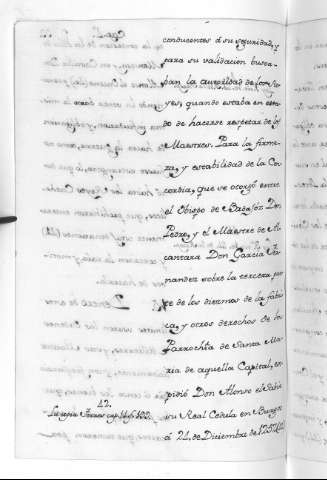 conducentes á su seguridad, y
para su validacion busca-
ban la autoridad de los Re-
yes, quando estaba en esta-
do de hacerse respetar de los
Maestres. Para la firme-
za, y estabilidad de la Con-
cordia, que se otorgó entre
el Obispo de Badajoz Don
Pedro, y el Maestre de Al-
cantara Don Garcia Fer-
nandez sobre la tercera par-
te de los diezmos de la fabri-
ca, y otros derechos de la
Parrochia de Santa Ma-
ria de aquella Capital, ex-
pidió Don Alonso el Sabio
su Real Cedula en Burgos
á 21. de Diciembre de 1257.